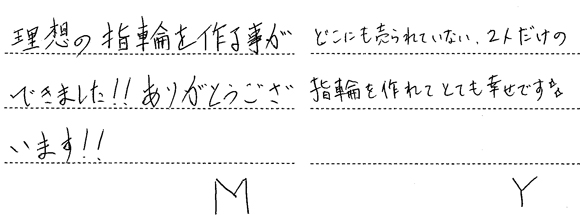 理想の指輪を作る事が
できました!!ありがとうござ
います!!
M
どこにも売られていない、2人だけの
指輪を作れてとても幸せです☆
Y